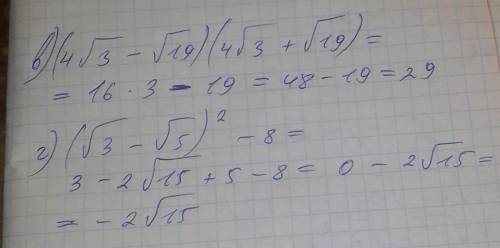 в) (4√3 - √19)(4√3 + √19) =
= 16 · 3 - 19 = 48 - 19 = 29
г) (√3 - √5)² - 8 =
3 - 2√15 + 5 - 8 = 0 - 2√15 =
= - 2√15